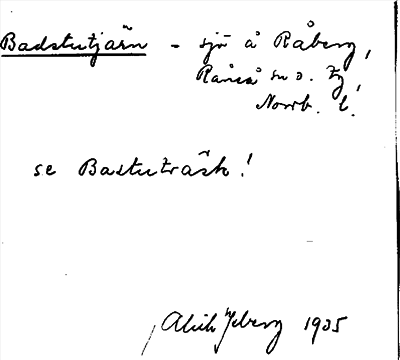 Badstutjärn - sjö å Råberg,
Råneå sn o. tg,
Norrb. l.
se Bastuträsk!
Ahlberg 1935